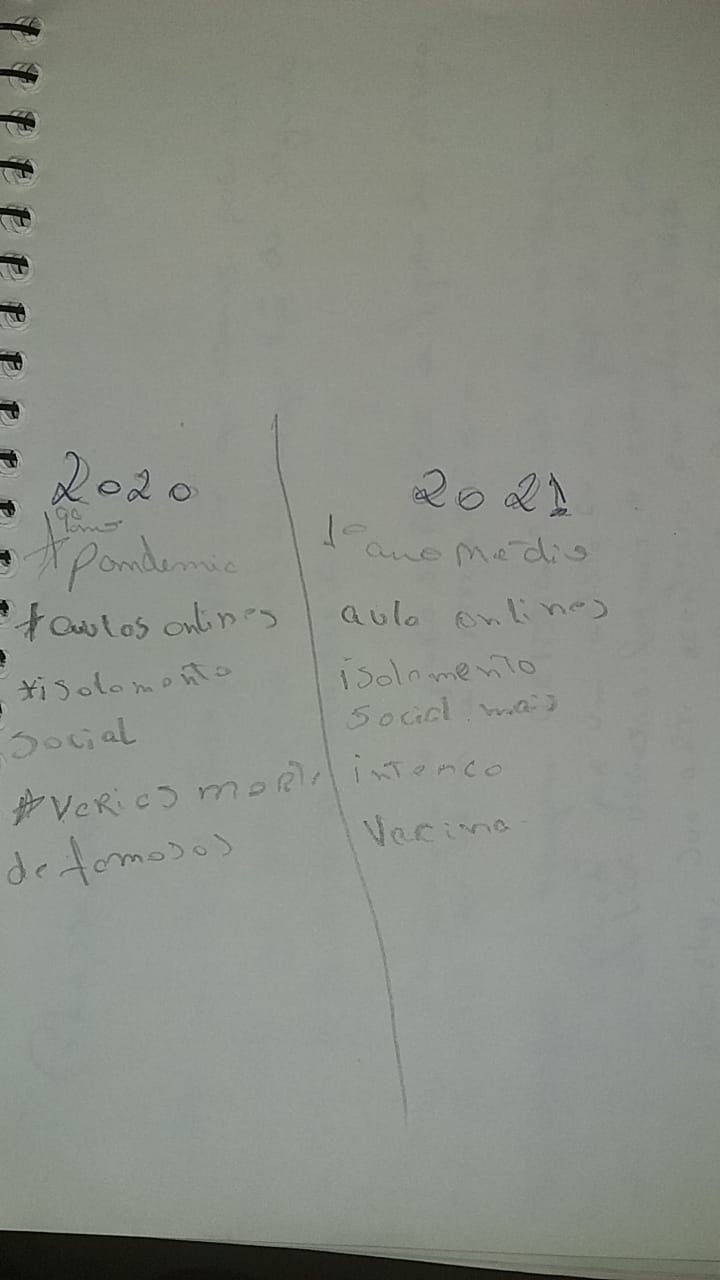 2020
9º ano
* Pandemic
* aulas onlines
* isolamento
social
* varias morte
de famosos
2021
1º ano médio
aula onlines
isolamento
social mais
intenco
Vacina